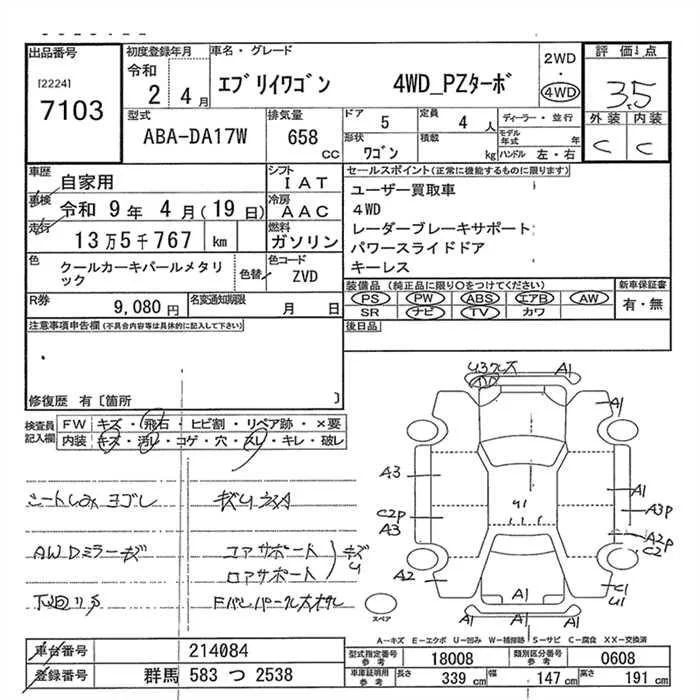 出品番号
[2224]
7103
初度登録年月
令和
2 4月
車名・グレード
エブリイワゴン 4WD_PZターボ
2WD
・
4WD
評価点
3.5
外装 内装
C C
型式
ABA-DA17W
排気量
658
CC
ドア 5
定員 4 人
ディーラー・並行
形状
ワゴン
積載
kg
モデル年式 年
ハンドル 左・右
車歴 自家用
車検 令和 9年 4月(19日)
走行 13万5千767 km
シフト IAT
冷房 AAC
燃料 ガソリン
色 クールカーキパールメタリック
色替
色コード ZVD
R券 9,080円
名変通知期限 月 日
セールスポイント(正常に機能するものに限ります)
ユーザー買取車
4WD
レーダーブレーキサポート
パワースライドドア
キーレス
装備品(純正品に限り○をつけてください)
PS PW ABS エアB AW
SR ナビ TV カワ
新車保証書
有・無
後日品
注意事項申告欄(不具合内容等は具体的に記入して下さい)
修復歴 有〔箇所 〕
検査員記入欄
FW キズ・飛石・ヒビ割・リペア跡・×要
内装 キズ・汚レ・コゲ・穴・スレ・キレ・破レ
シートしみ ヨゴレ
AWDミラーキズ
コアサポート
ロアサポート
キズU
A1
A1
A3
A1
C2P
A3
A3P
U1
A2P
C2
A2
C1
U1
A1
A1
スペア
A-キズ E-エクボ U-凹み W-補修跡 S-サビ C-腐食 XX-交換済
車台番号 214084
登録番号 群馬 583 つ 2538
型式指定番号参考 18008
類別区分番号参考 0608
車庫証明用参考 長さ 339cm 幅 147cm 高さ 191cm